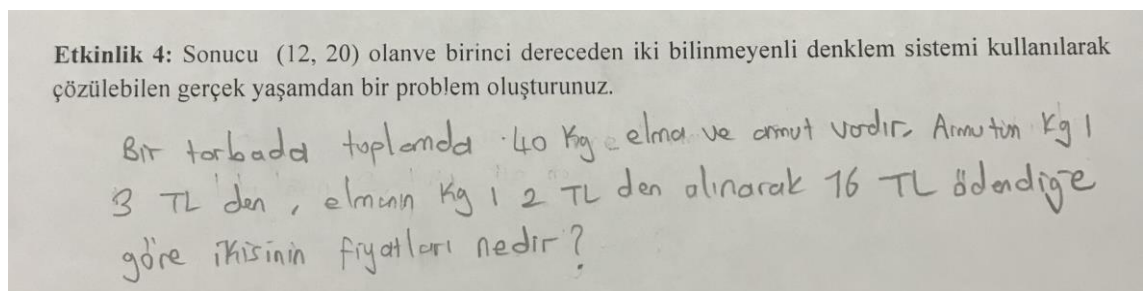 Etkinlik 4: Sonucu (12, 20) olanve birinci dereceden iki bilinmeyenli denklem sistemi kullanılarak
çözülebilen gerçek yaşamdan bir problem oluşturunuz.
Bir torbada toplamda 40 Kg elma ve armut vardır. Armutun Kg ı
3 TL den, elmanın Kg ı 2 TL den alınarak 76 TL ödendiğe
göre ikisinin fiyatları nedir?